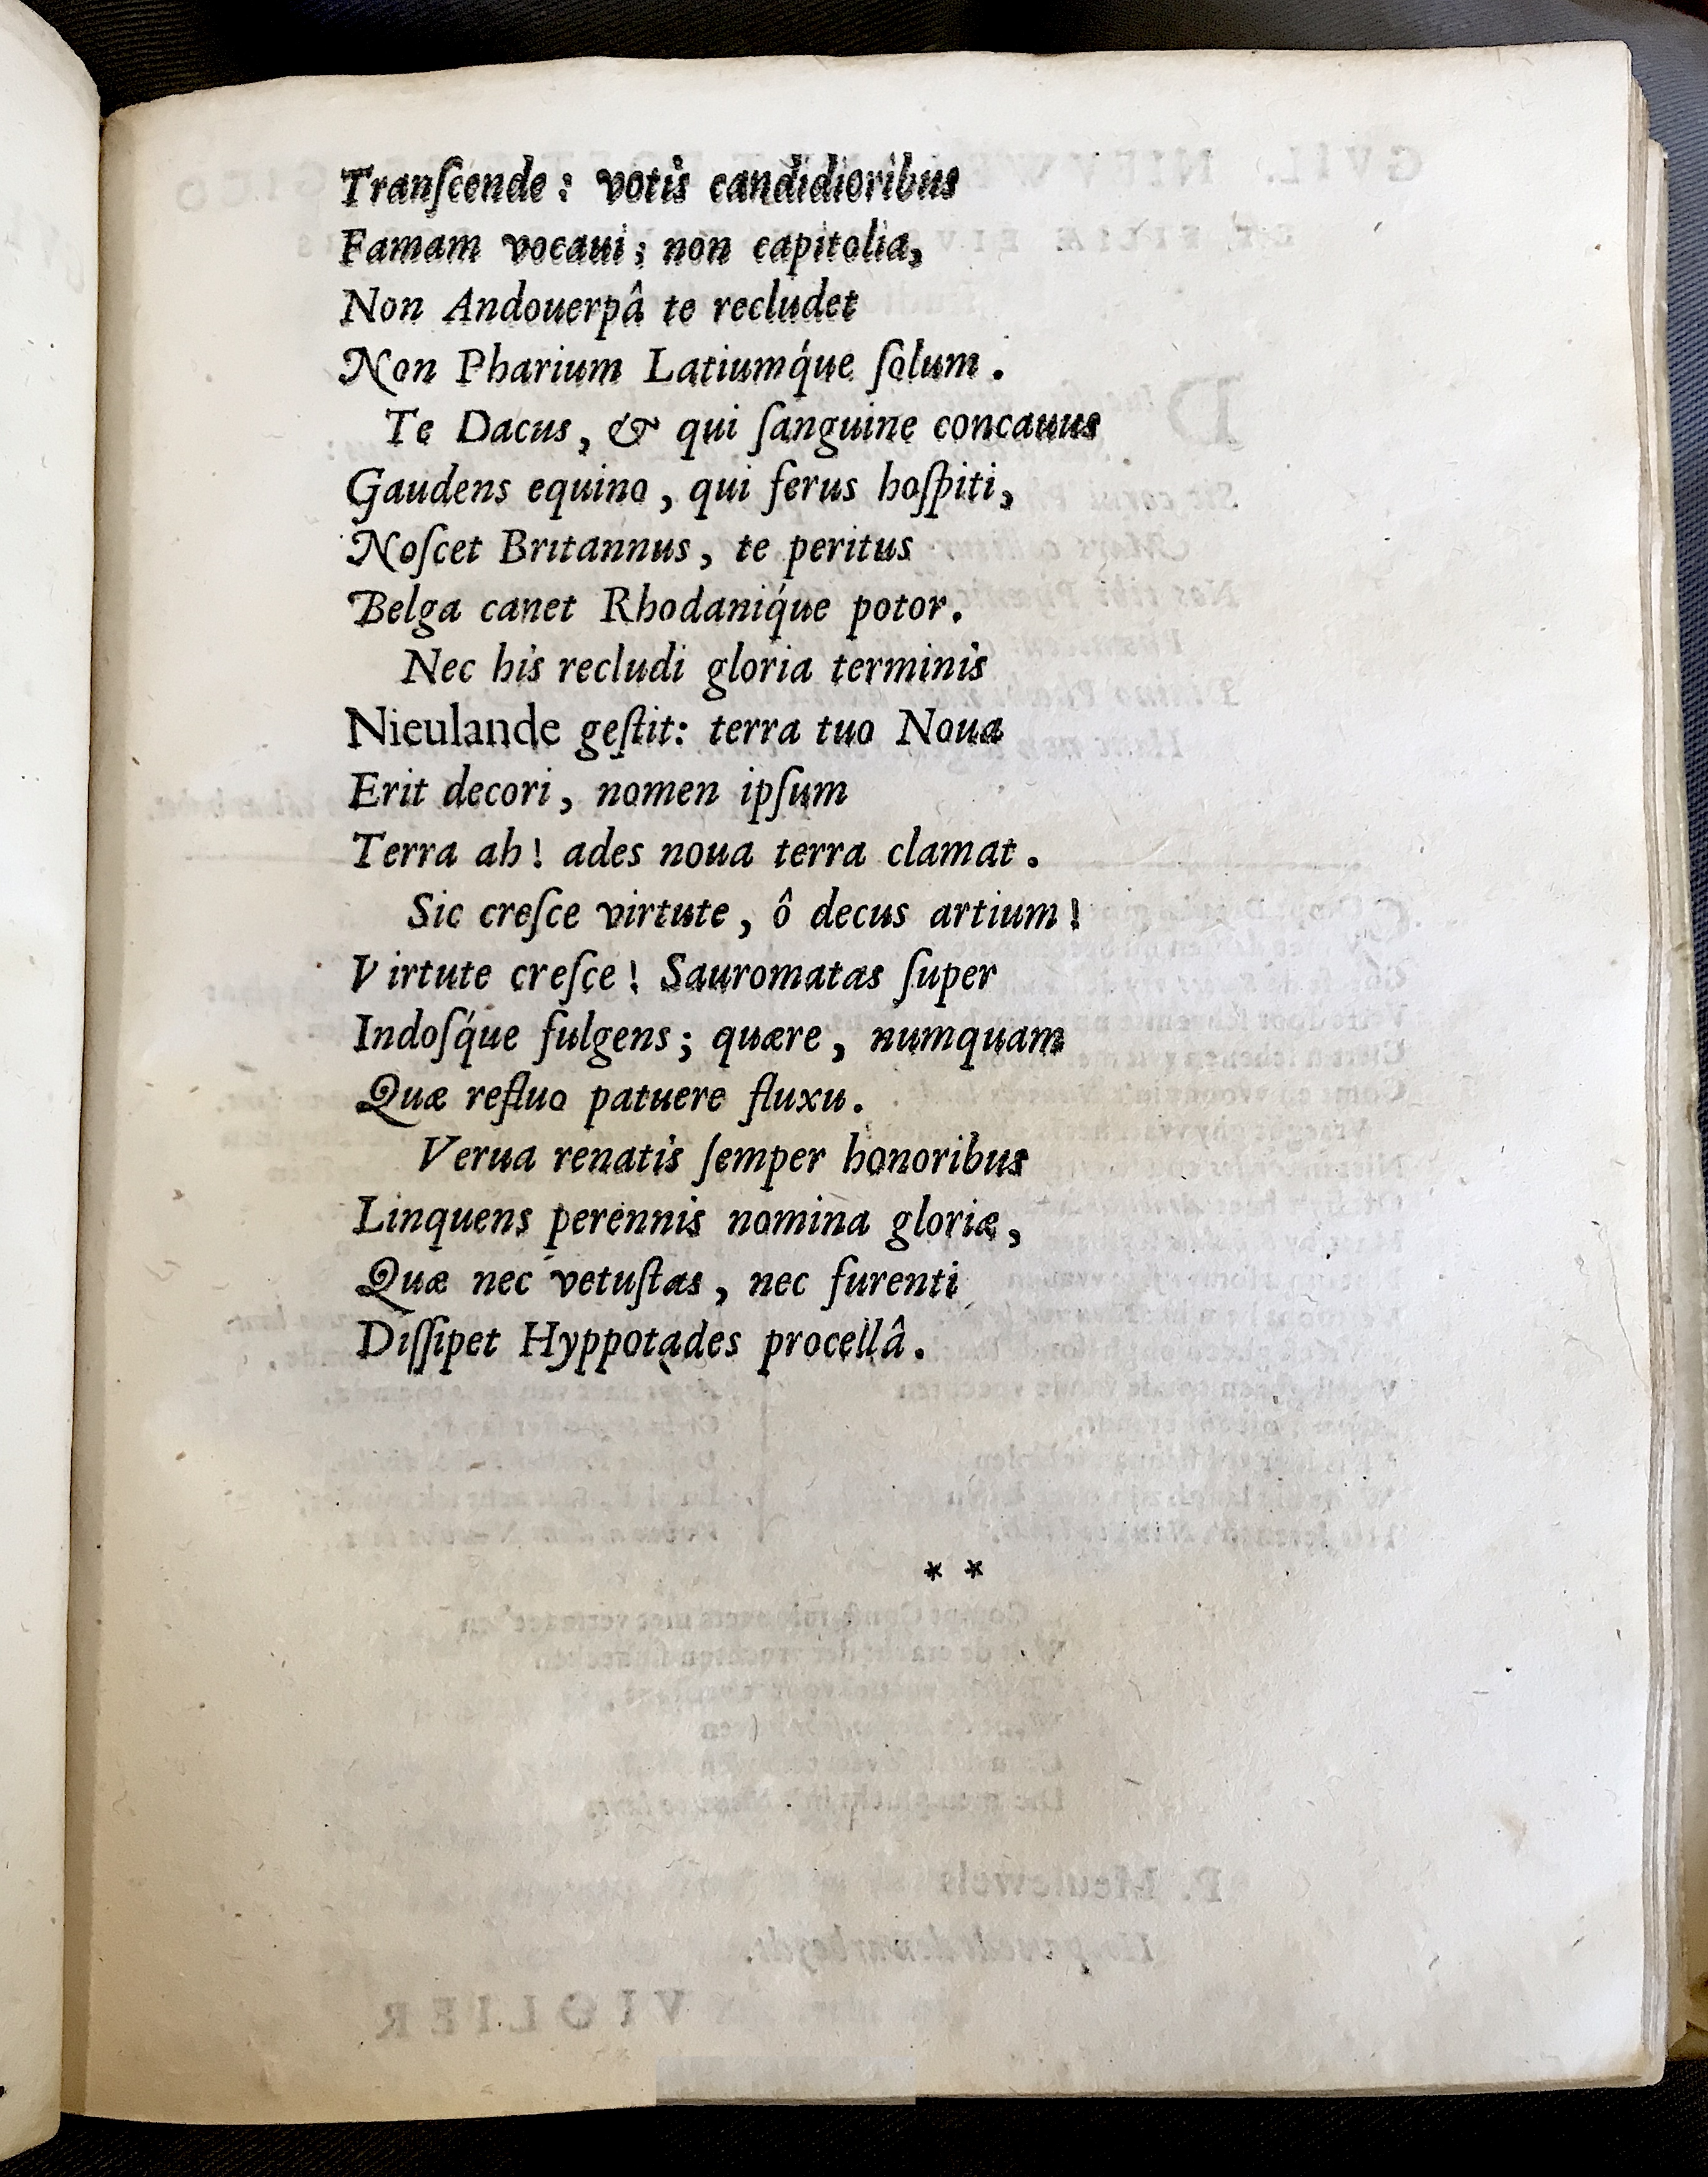 Tranſcende: votis candidioribus
Famam vocaui; non capitolia,
Non Andouerpâ te recludet
Non Pharium Latiumq́ue ſolum.
Te Dacus, & qui ſanguine concauus
Gaudens equino, qui ferus hoſpiti,
Noſcet Britannus, te peritus
Belga canet Rhodaniq́ue potor.
Nec his recludi gloria terminis
Nieulande geſtit: terra tuo Noua
Erit decori, nomen ipſum
Terra ah! ades noua terra clamat.
Sic creſce virtute, ô decus artium!
Virtute creſce! Sauromatas ſuper
Indoſq́ue fulgens; quære, numquam
Quæ refluo patuere fluxu.
Verua renatis ſemper honoribus
Linquens perennis nomina gloriæ,
Quæ nec vetuſtas, nec furenti
Diſſipet Hyppotades procellâ.
* *